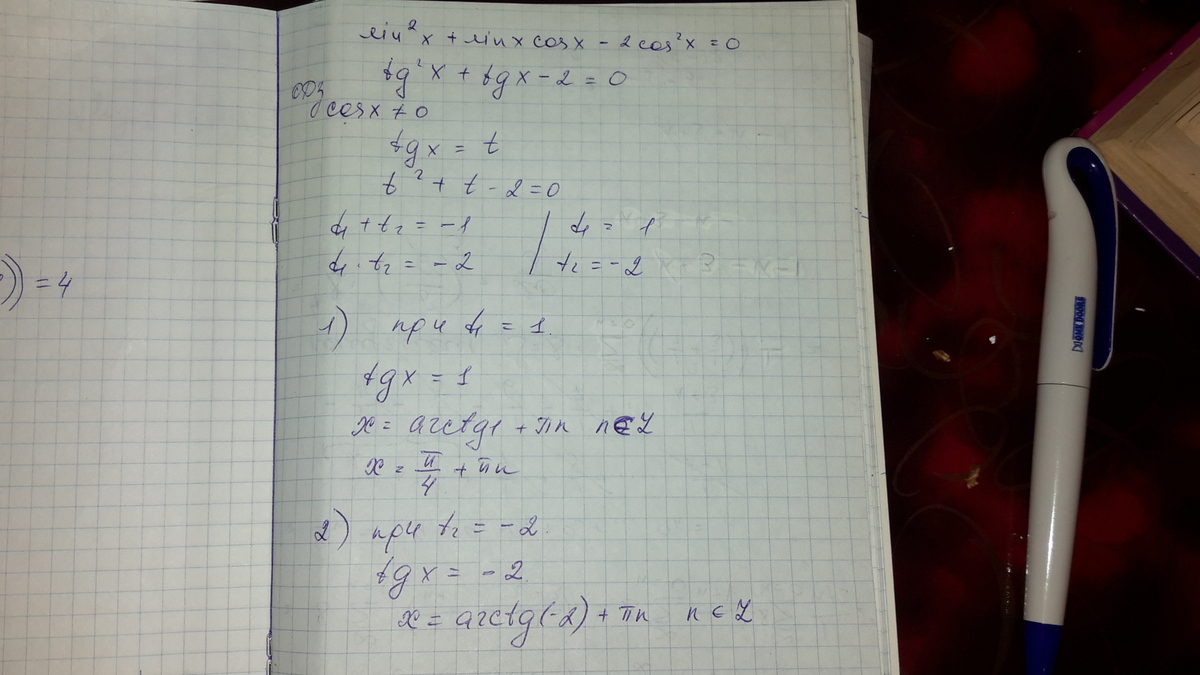 sin²x + sinx cosx - 2cos²x = 0
tg²x + tgx - 2 = 0
ОДЗ
cosx ≠ 0
tgx = t
t² + t - 2 = 0
t₁ + t₂ = -1 | t₁ = 1
t₁ · t₂ = -2 | t₂ = -2
)) = 4
1) при t₁ = 1.
tgx = 1
x = arctg1 + πn n∈Z
x = π/4 + πn
2) при t₂ = -2.
tgx = -2.
x = arctg(-2) + πn n∈Z